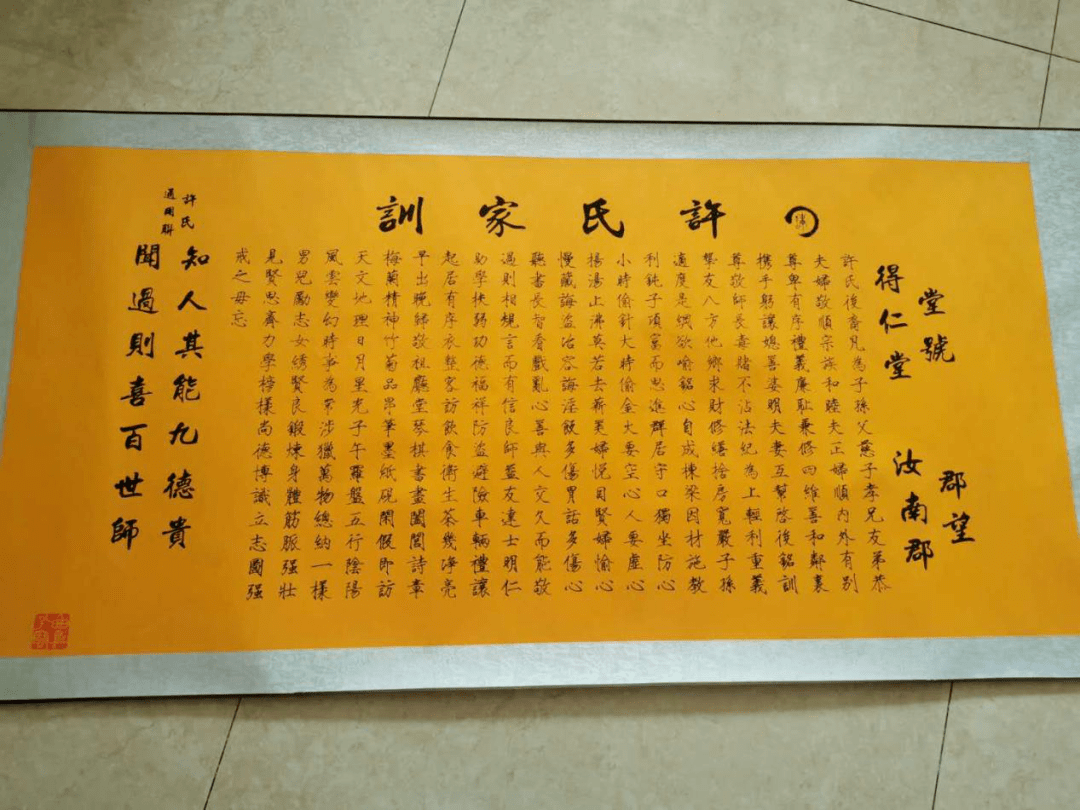 許氏家訓
堂號
得仁堂
郡望
汝南郡
許氏後裔凡為子孫父慈子孝兄友弟恭
夫婦敬順宗族和睦夫正婦順內外有別
尊卑有序禮義廉恥兼修四維善和鄰裏
携手躬讓媳善婆明夫妻互幫啓後銘訓
尊敬師長毒賭不沾法紀為上輕利重義
幫友八方他鄉求財修繕捨房寬嚴子孫
適度是綱欲喻銘心自成棟梁因材施教
利鈍子項窮而思進群居守口獨坐防心
小時偷針大時偷金火要空心人要虛心
揚湯止沸莫若去薪美婦悅目賢婦愉心
慢藏誨盜冶容誨淫飯多傷胃話多傷心
聽書長智看戲亂心善與人交久而能敬
過則相規言而有信良師益友達士明仁
助學扶弱功德福祥防盜避險車輛禮讓
起居有序衣整容訪飲食衛生茶幾凈亮
早出晚歸敬祖廳堂琴棋書畫闔閭詩章
梅蘭精神竹菊品串筆墨紙硯閑假即訪
天文地理日月星光子午羅盤五行陰陽
風雲變幻時事為常涉獵萬物總納一樣
男兒勵志女綉賢良鍛煉身體筋脈强壯
見賢思齋力學榜樣尚德博識立志國强
戒之毋忘
許氏
通用聯
知人其能九德貴
聞過則喜百世師